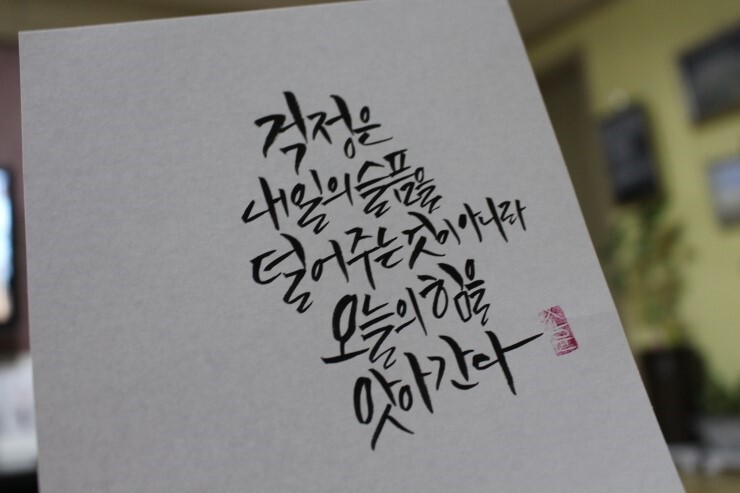 걱정은
내일의 슬픔을
덜어주는 것이 아니라
오늘의 힘을
앗아간다